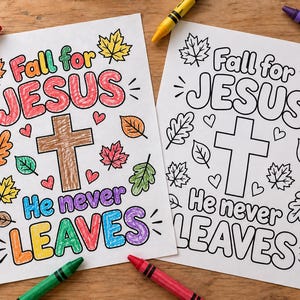 Fall for
JESUS
He never
LEAVES
Fall for
JESUS
He never
LEAVES